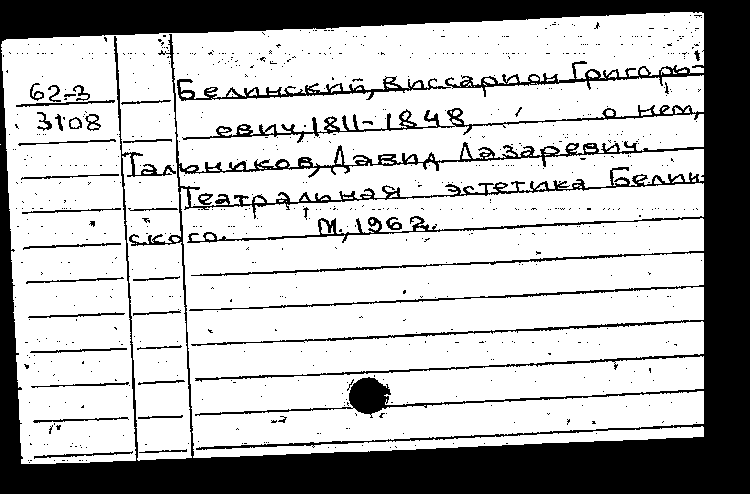 62-3
3108
Белинский, Виссарион Григорь-
евич, 1811-1848, о нем,
Тальников, Давид Лазаревич.
Театральная эстетика Белин-
ского. М., 1962.